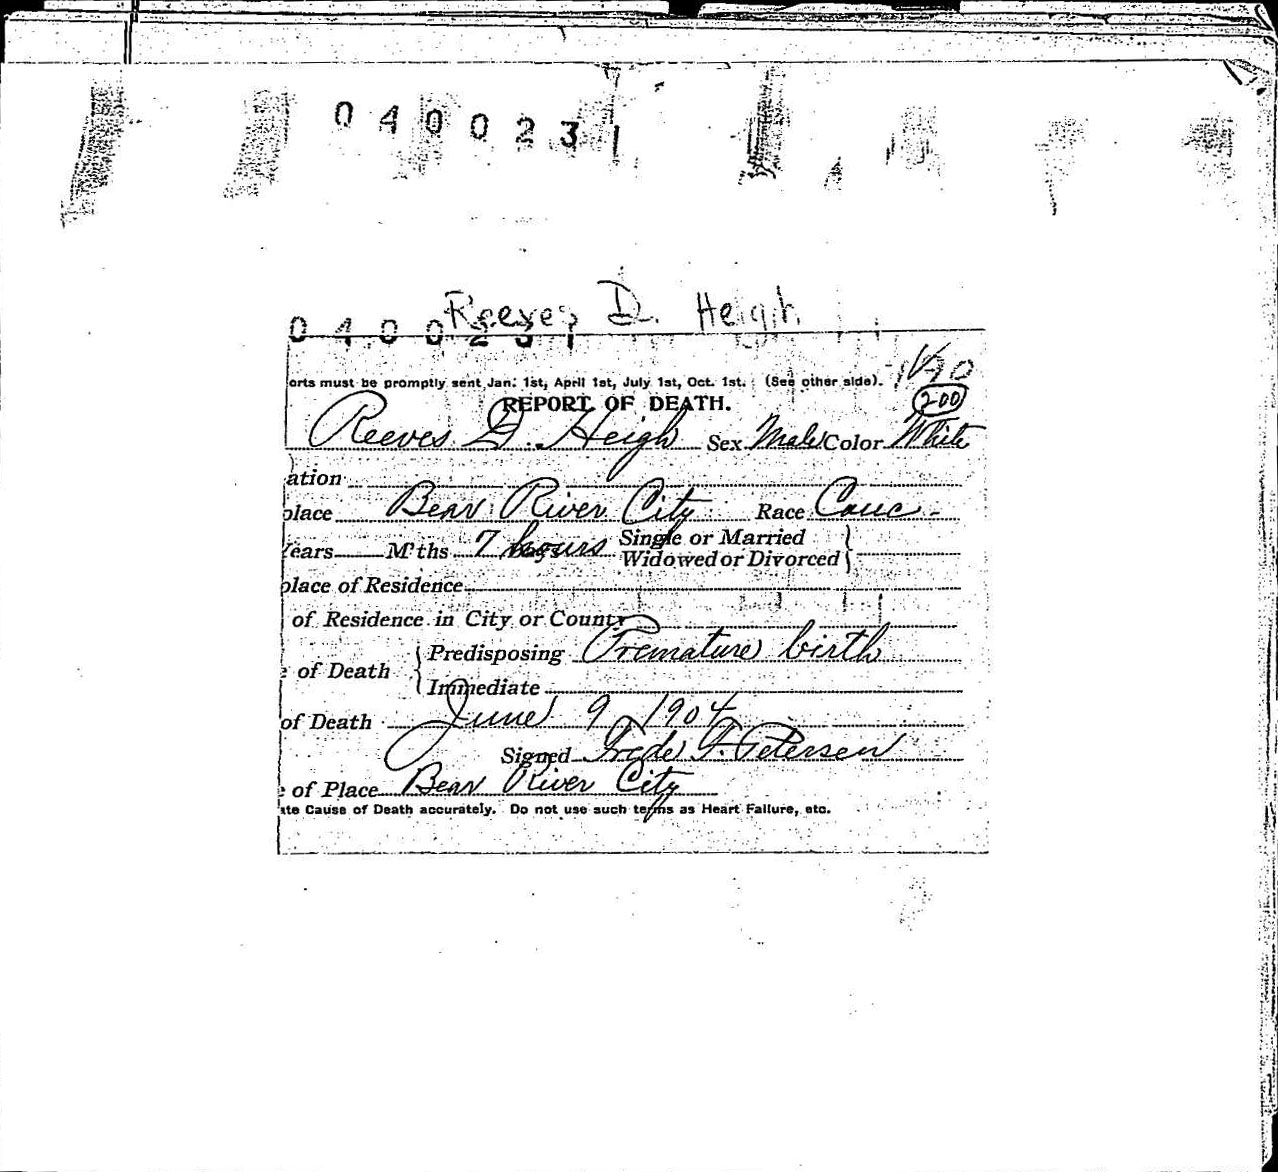 0 4 0 0 2 3 1
Reeves D. Heigh
0 4 0 0 2 3 1
orts must be promptly sent Jan. 1st, April 1st, July 1st, Oct. 1st. (See other side).
200
REPORT OF DEATH.
Reeves D. Heigh Sex Male Color White
ation
place Bear River City Race Cauc-
Years M'ths 7 hours Single or Married
Widowed or Divorced
place of Residence
of Residence in City or County
Predisposing Premature birth
e of Death
Immediate
of Death June 9 1904
Signed Frede F. Petersen
e of Place Bear River City
ate Cause of Death accurately. Do not use such terms as Heart Failure, etc.